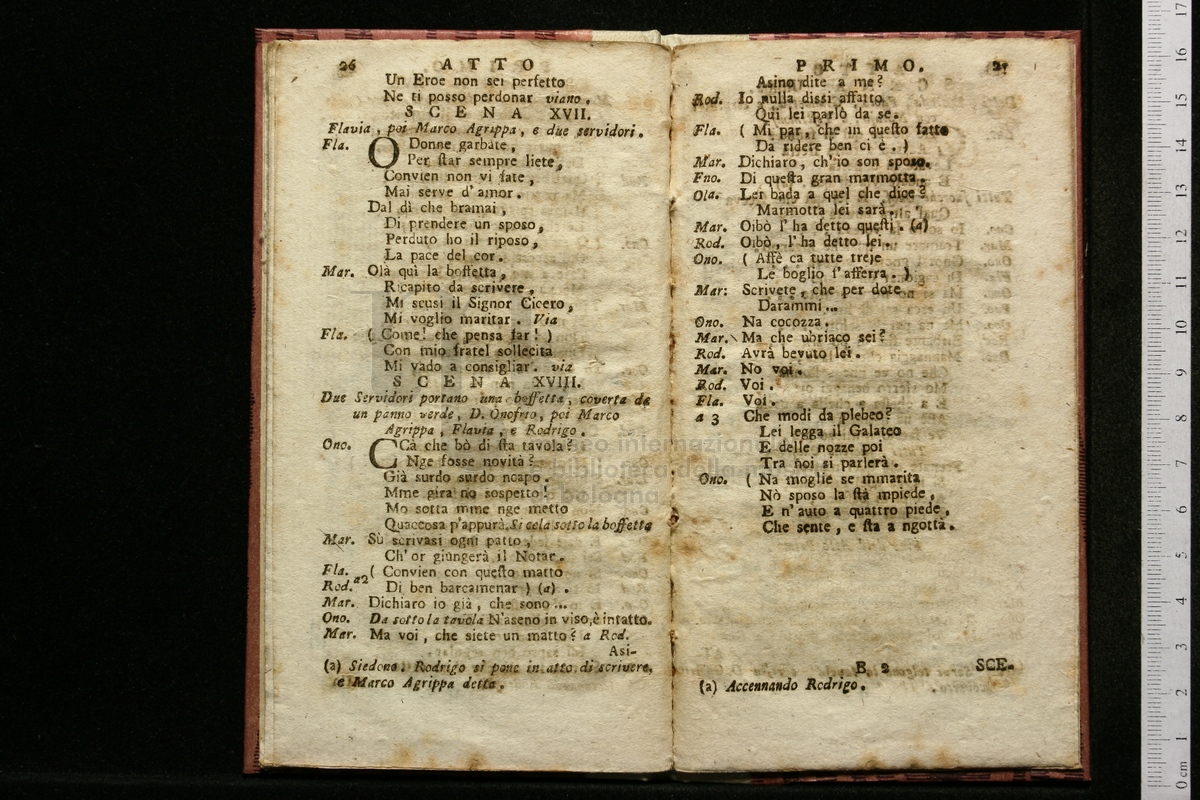 26 ATTO
Un Eroe non sei perfetto
Ne ti posso perdonar viano.
SCENA XVII.
Flavia, poi Marco Agrippa, e due servidori.
Fla. O Donne garbate,
Per ſtar sempre liete,
Convien non vi fate,
Mai serve d'amor.
Dal dì che bramai,
Di prendere un sposo,
Perduto ho il riposo,
La pace del cor.
Mar. Olà quì la boffetta,
Ricapito da scrivere,
Mi scusi il Signor Cicero,
Mi voglio maritar. Via
Fla. (Come! che pensa far!)
Con mio fratel sollecita
Mi vado a consigliar. via
SCENA XVIII.
Due Servidori portano una boffetta, coverta da
un panno verde, D. Onofrio, poi Marco
Agrippa, Flavia, e Rodrigo.
Ono. CCà che bò di ſta tavola?
Nge fosse novità?
Già surdo surdo ncapo.
Mme gira no sospetto!
Mo sotta mme nge metto
Quaccosa p'appurà. Si cela sotto la boffetta
Mar. Sù scrivasi ogni patto,
Ch'or giungerà il Notar.
Fla. (Convien con queſto matto
Rod. a2 Di ben barcamenar) (a).
Mar. Dichiaro io già, che sono...
Ono. Da sotto la tavola N'aseno in viso, è intatto.
Mar. Ma voi, che siete un matto? a Rod.
Asi-
(a) Siedono. Rodrigo si pone in atto di scrivere,
e Marco Agrippa detta.
PRIMO. 27
Asino dite a me?
Rod. Io nulla dissi affatto
Qui lei parlò da se.
Fla. (Mi par, che in queſto fatto
Da ridere ben ci è.)
Mar. Dichiaro, ch'io son sposo.
Fno. Di queſta gran marmotta.
Ola. Lei bada a quel che dice?
Marmotta lei sarà.
Mar. Oibò l'ha detto queſti. (a)
Rod. Oibò, l'ha detto lei.
Ono. (Affè ca tutte treje
Le boglio ſ'afferra.)
Mar: Scrivete, che per dote
Darammi...
Ono. Na cocozza.
Mar. Ma che ubriaco sei?
Rod. Avrà bevuto lei.
Mar. No voi.
Rod. Voi.
Fla. Voi.
a 3 Che modi da plebeo?
Lei legga il Galateo
E delle nozze poi
Tra noi si parlerà.
Ono. (Na moglie se mmarita
Nò sposo la ſtà mpiede,
E n'auto a quattro piede,
Che sente, e ſta a ngotta.
B 2 SCE-
(a) Accennando Rodrigo.